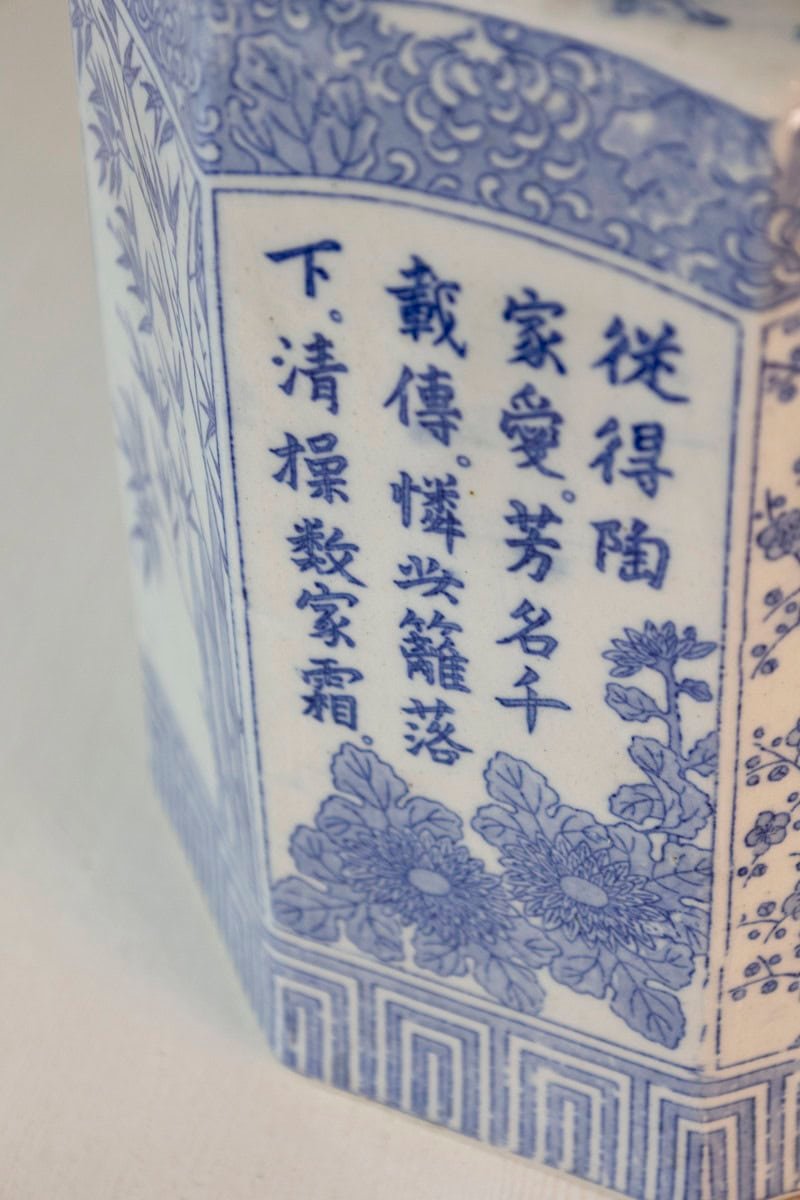 従得陶
家愛。芳名千
載傳。憐此籬落
下。清操数家霜。